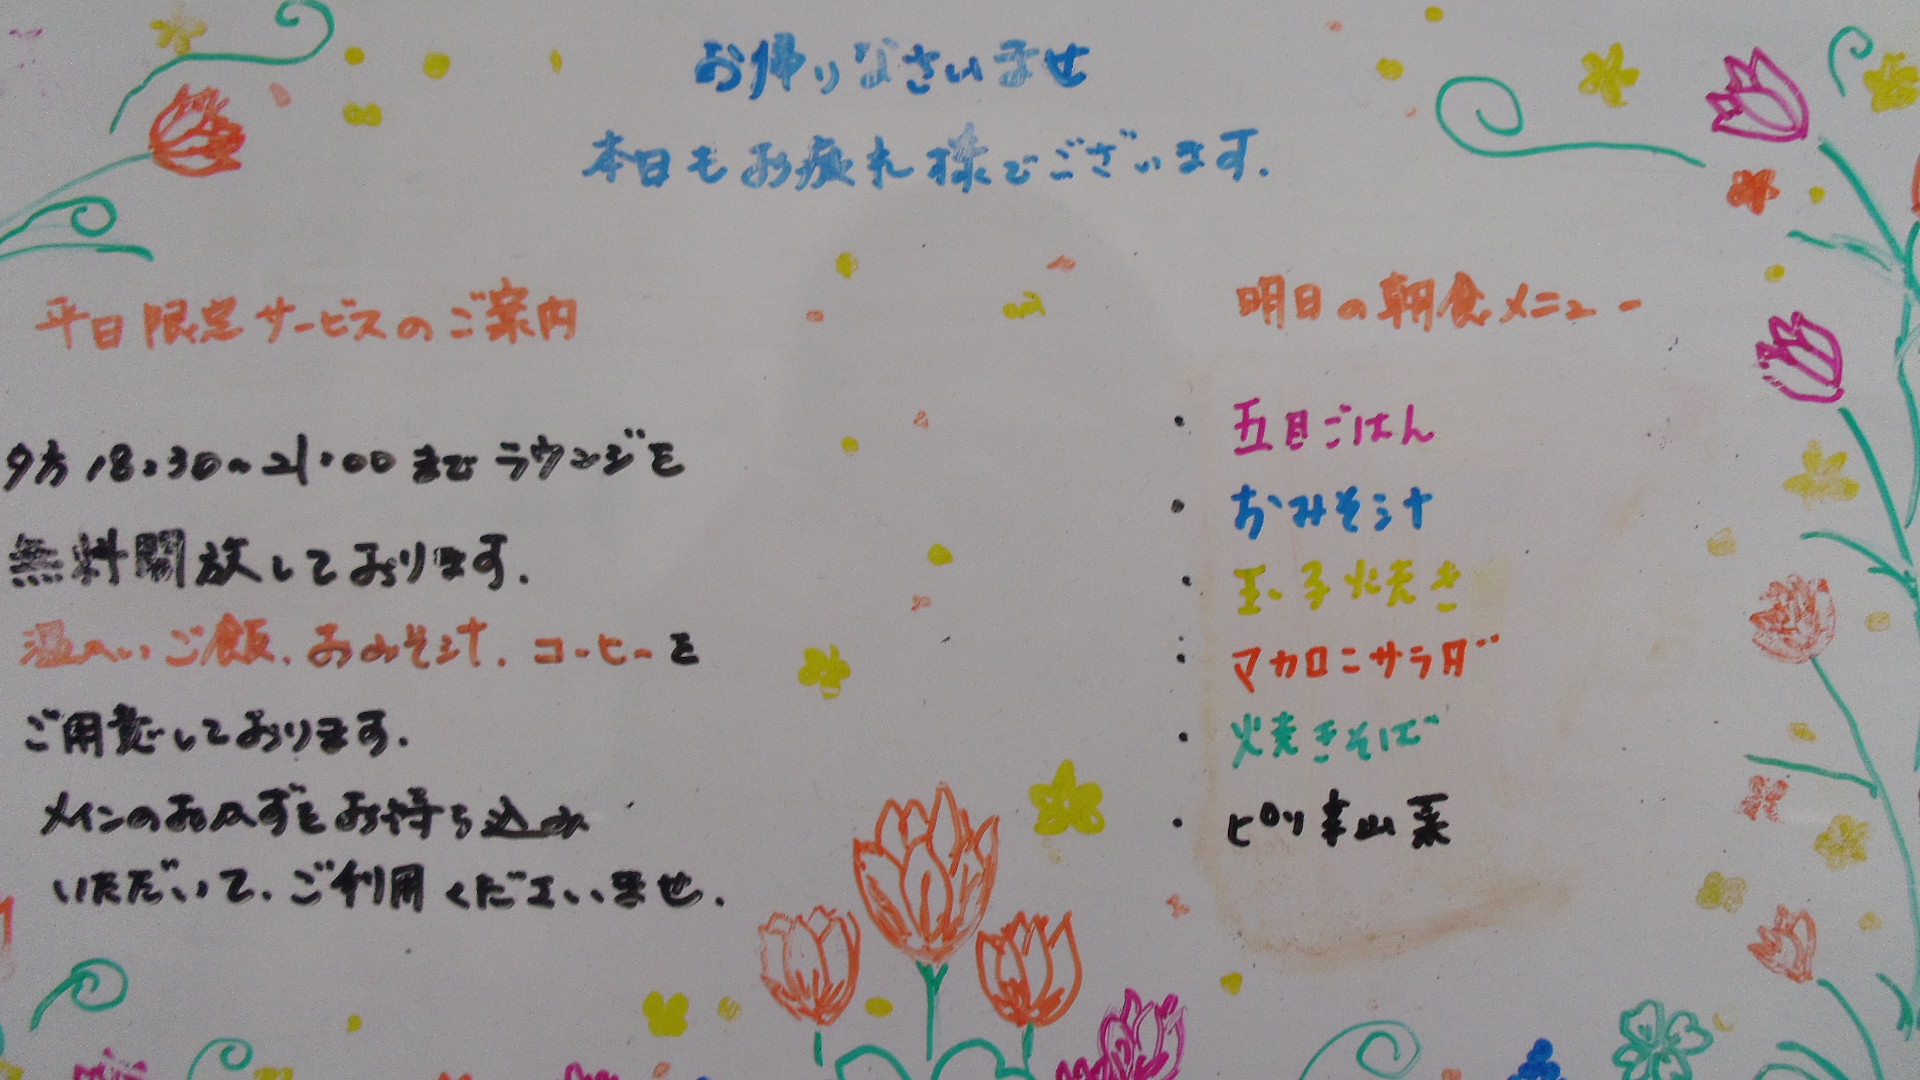 お帰りなさいませ
本日もお疲れ様でございます.
平日限定サービスのご案内
夕方18:30〜21:00までラウンジを
無料開放しております.
温かいご飯、おみそ汁、コーヒーを
ご用意しております.
メインのおかずをお持ち込み
いただいて、ご利用くださいませ.
明日の朝食メニュー
・五目ごはん
・おみそ汁
・玉子焼き
・マカロニサラダ
・焼きそば
・ピリ辛山菜